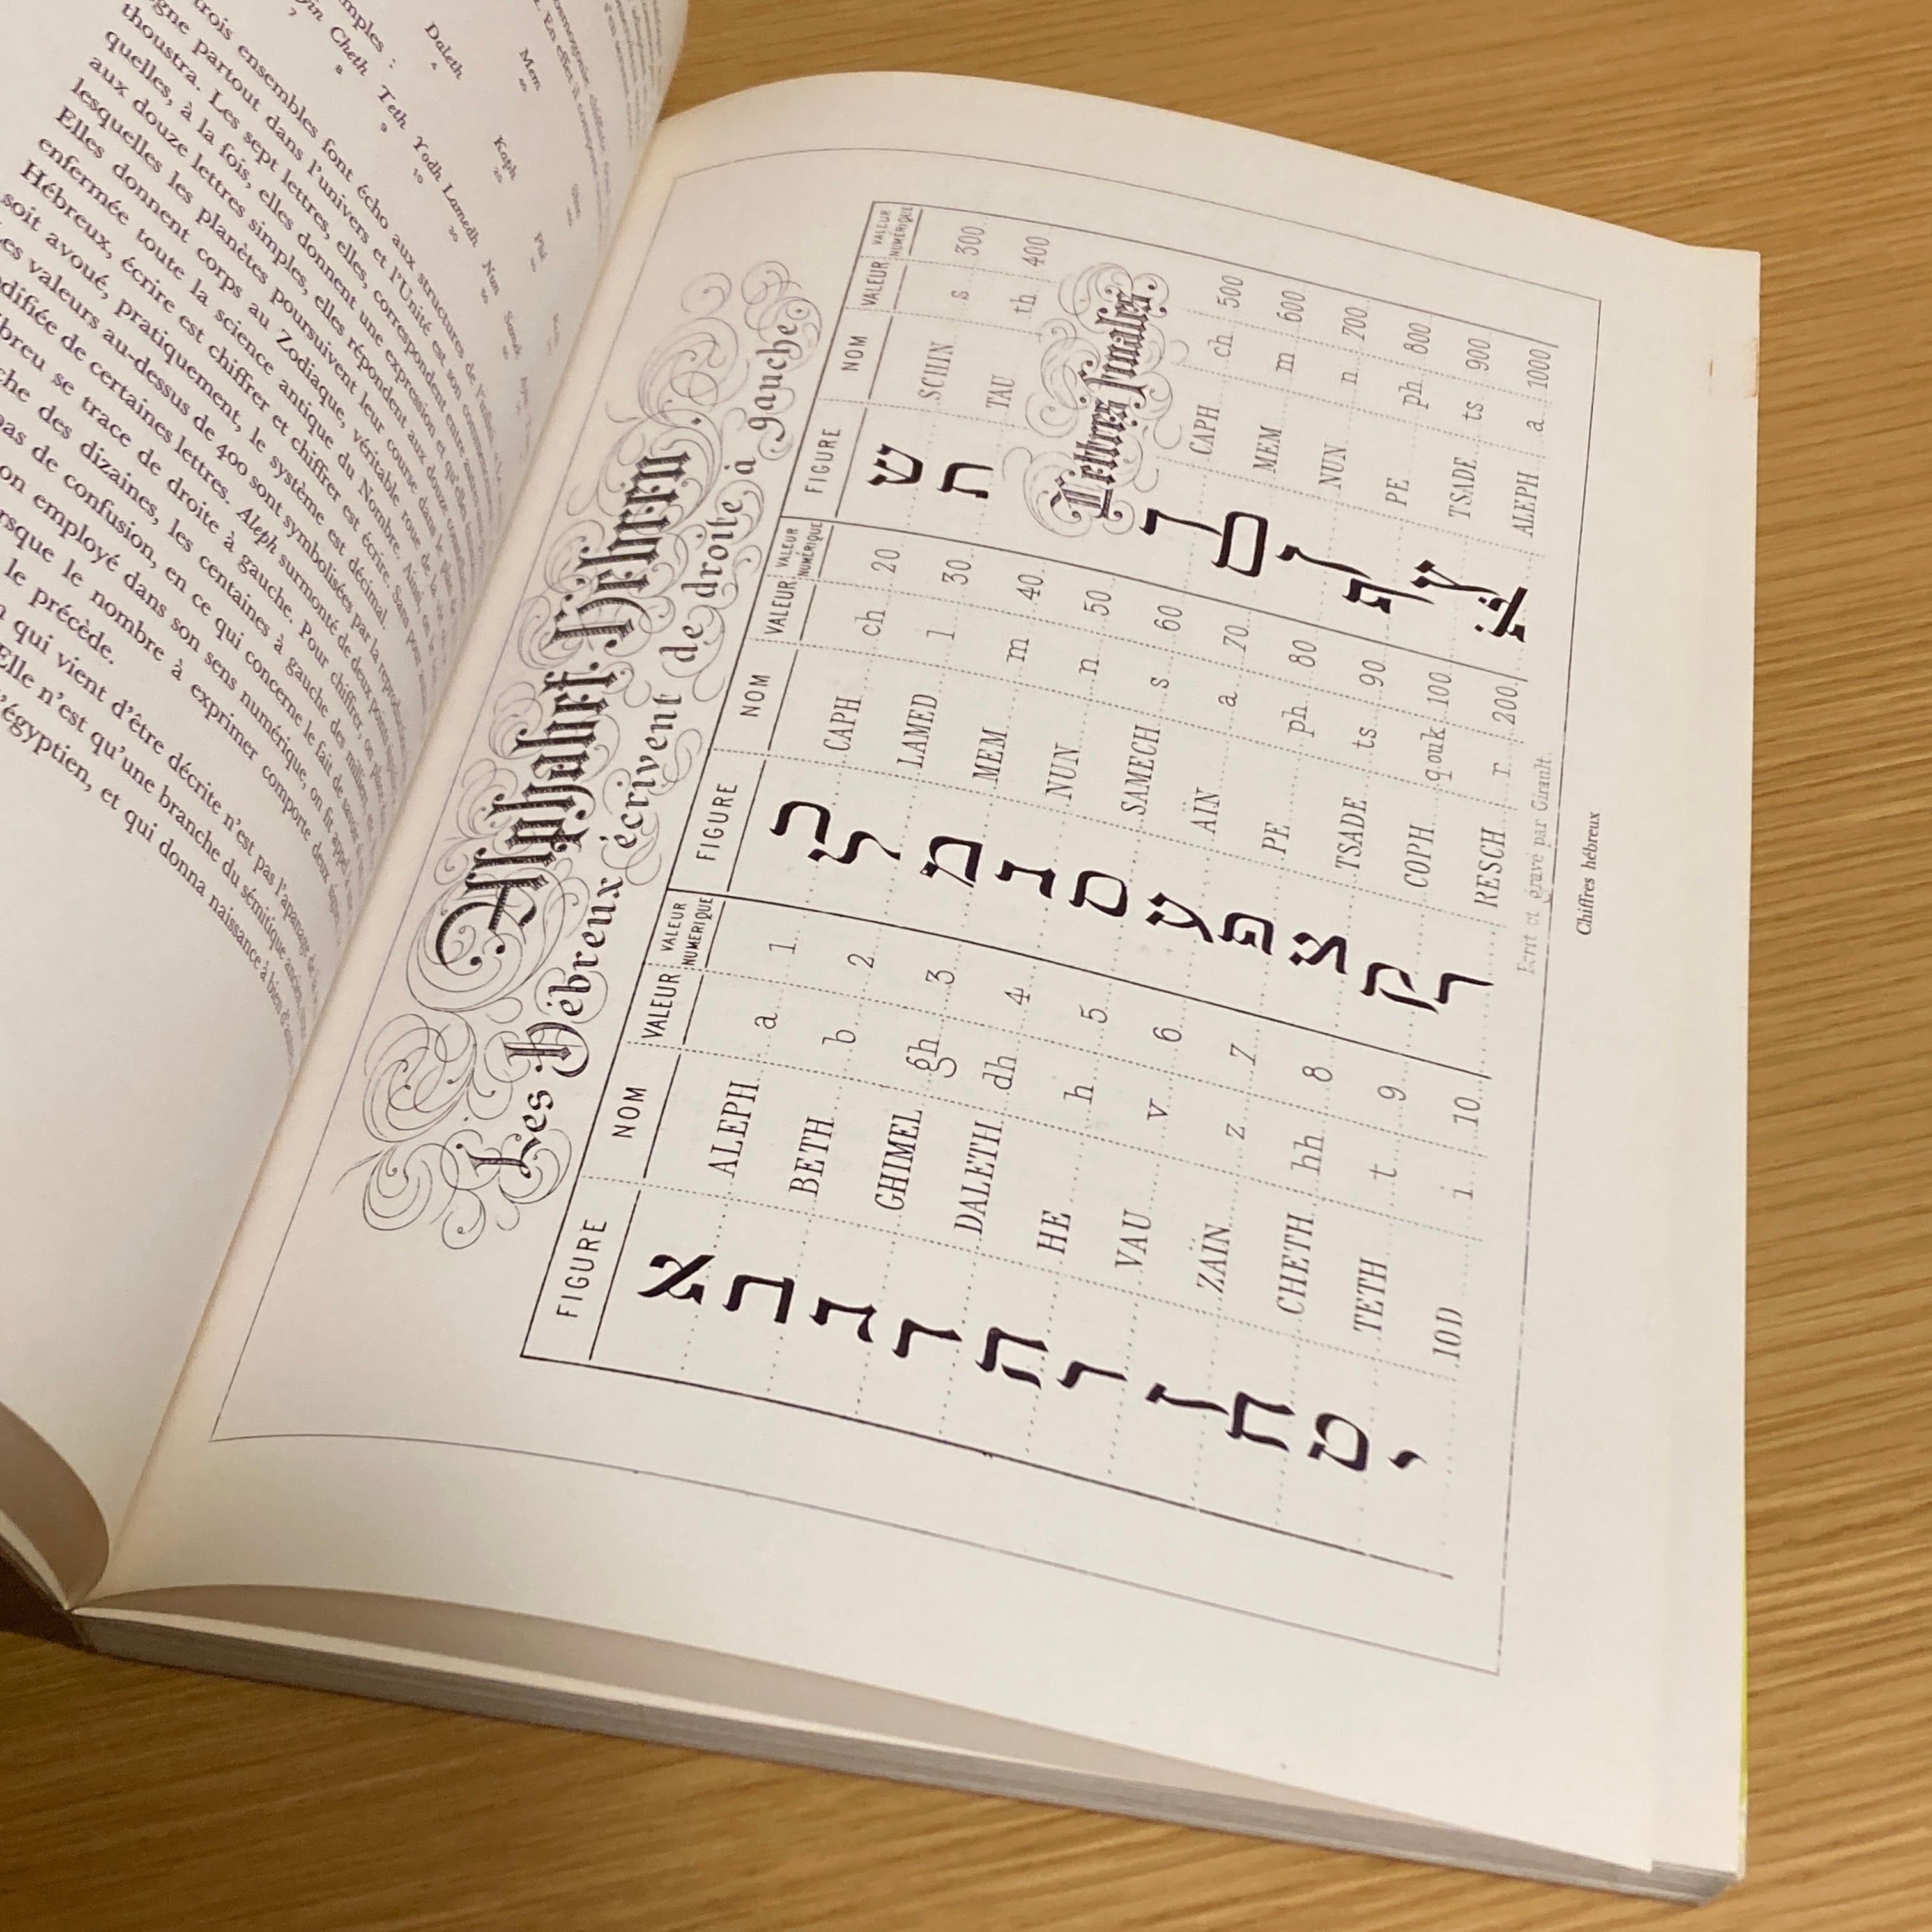 mples :
Daleth Men Kaph
4 40 20
Cheth Teth Yodh Lamedh Nun Samek
7 8 9 10 30 50
trois ensembles font écho aux structures de
gne partout dans l'univers et l'Unité est son
thoustra. Les sept lettres, elles, correspondent
quelles, à la fois, elles donnent une expression et
aux douze lettres simples, elles répondent aux douze
lesquelles les planètes poursuivent leur course dans le
Elles donnent corps au Zodiaque, véritable roue de la
enfermée toute la science antique du Nombre. Ainsi
Hébreux, écrire est chiffrer et chiffrer est écrire. Sans
soit avoué, pratiquement, le système est décimal.
es valeurs au-dessus de 400 sont symbolisées par la
difiée de certaines lettres. Aleph surmonté de deux points
breu se trace de droite à gauche. Pour chiffrer, on
che des dizaines, les centaines à gauche des
pas de confusion, en ce qui concerne le fait de savoir
on employé dans son sens numérique, on fit appel
rsque le nombre à exprimer comporte deux
le précède.
qui vient d'être décrite n'est pas l'apanage de
Elle n'est qu'une branche du sémitique ancien
l'égyptien, et qui donna naissance à bien
Alphabet Hébreu
Les Hébreux écrivent de droite à gauche
FIGURE NOM VALEUR VALEUR NUMÉRIQUE
א ALEPH a 1
ב BETH b 2
ג GHIMEL gh 3
ד DALETH dh 4
ה HE h 5
ו VAU v 6
ז ZAÏN z 7
ח CHETH hh 8
ט TETH t 9
י IOD i 10
FIGURE NOM VALEUR VALEUR NUMÉRIQUE
כ CAPH ch 20
ל LAMED l 30
מ MEM m 40
נ NUN n 50
ס SAMECH s 60
ע AÏN a 70
פ PE ph 80
צ TSADE ts 90
ק COPH qouk 100
ר RESCH r 200
FIGURE NOM VALEUR VALEUR NUMÉRIQUE
ש SCHIN s 300
ת TAU th 400
Lettres finales
ך CAPH ch 500
ם MEM m 600
ן NUN n 700
ף PE ph 800
ץ TSADE ts 900
א̈ ALEPH a 1000
Écrit et gravé par Girault.
Chiffres hébreux